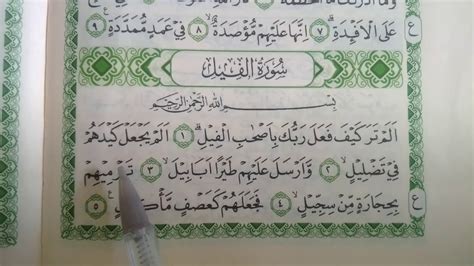 عَلَى الْاَفْـِٕدَةِۗ ٧ اِنَّهَا عَلَيْهِمْ مُّؤْصَدَةٌۙ ٨ فِيْ عَمَدٍ مُّمَدَّدَةٍ ٩
ع
سُوْرَةُ الْفِيْلِ
بِسْمِ اللهِ الرَّحْمٰنِ الرَّحِيْمِ
اَلَمْ تَرَ كَيْفَ فَعَلَ رَبُّكَ بِاَصْحٰبِ الْفِيْلِۗ ١ اَلَمْ يَجْعَلْ كَيْدَهُمْ
فِيْ تَضْلِيْلٍۙ ٢ وَّاَرْسَلَ عَلَيْهِمْ طَيْرًا اَبَابِيْلَۙ ٣ تَرْمِيْهِمْ
بِحِجَارَةٍ مِّنْ سِجِّيْلٍۙ ٤ فَجَعَلَهُمْ كَعَصْفٍ ٥
ع